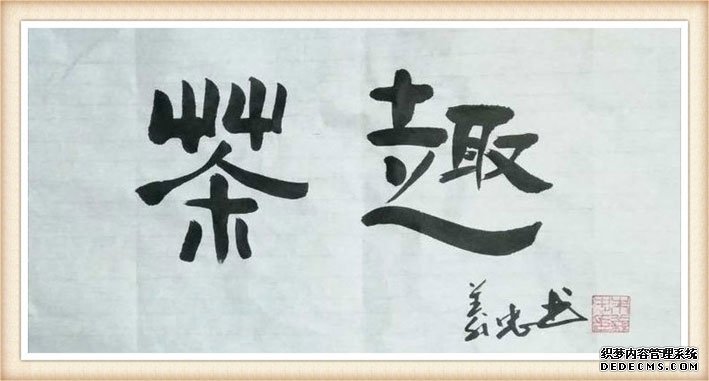 茶趣
義忠书
织梦内容管理系统
DEDECMS.COM